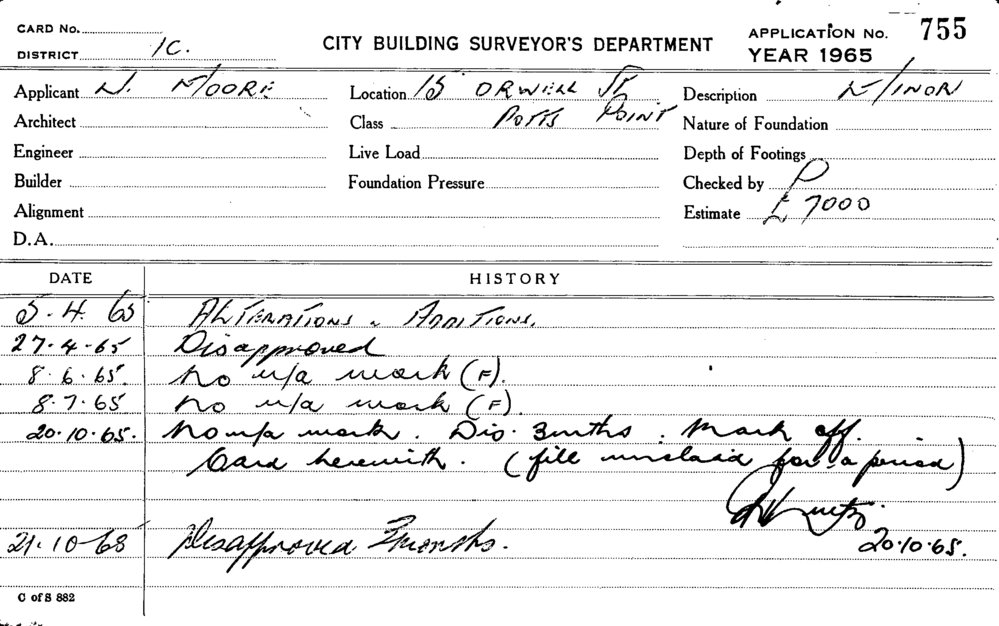 CARD No.
DISTRICT 1C.
CITY BUILDING SURVEYOR'S DEPARTMENT
APPLICATION No. 755
YEAR 1965
Applicant N. MOORE
Location 15 ORWELL ST
Description MINOR
Architect
Class POTTS POINT
Nature of Foundation
Engineer
Live Load
Depth of Footings
Builder
Foundation Pressure
Checked by P
Alignment
Estimate £7000
D.A.
DATE HISTORY
5.4.65 ALTERATIONS & ADDITIONS.
27.4.65 Disapproved
8.6.65. No u/a work (F).
8.7.65 No u/a work (F).
20.10.65. No u/a work. Dis. 3mths. Mark off.
Card herewith. (fill unclaid for a period)
20.10.65.
21.10.65 Disapproved months.
C of S 882